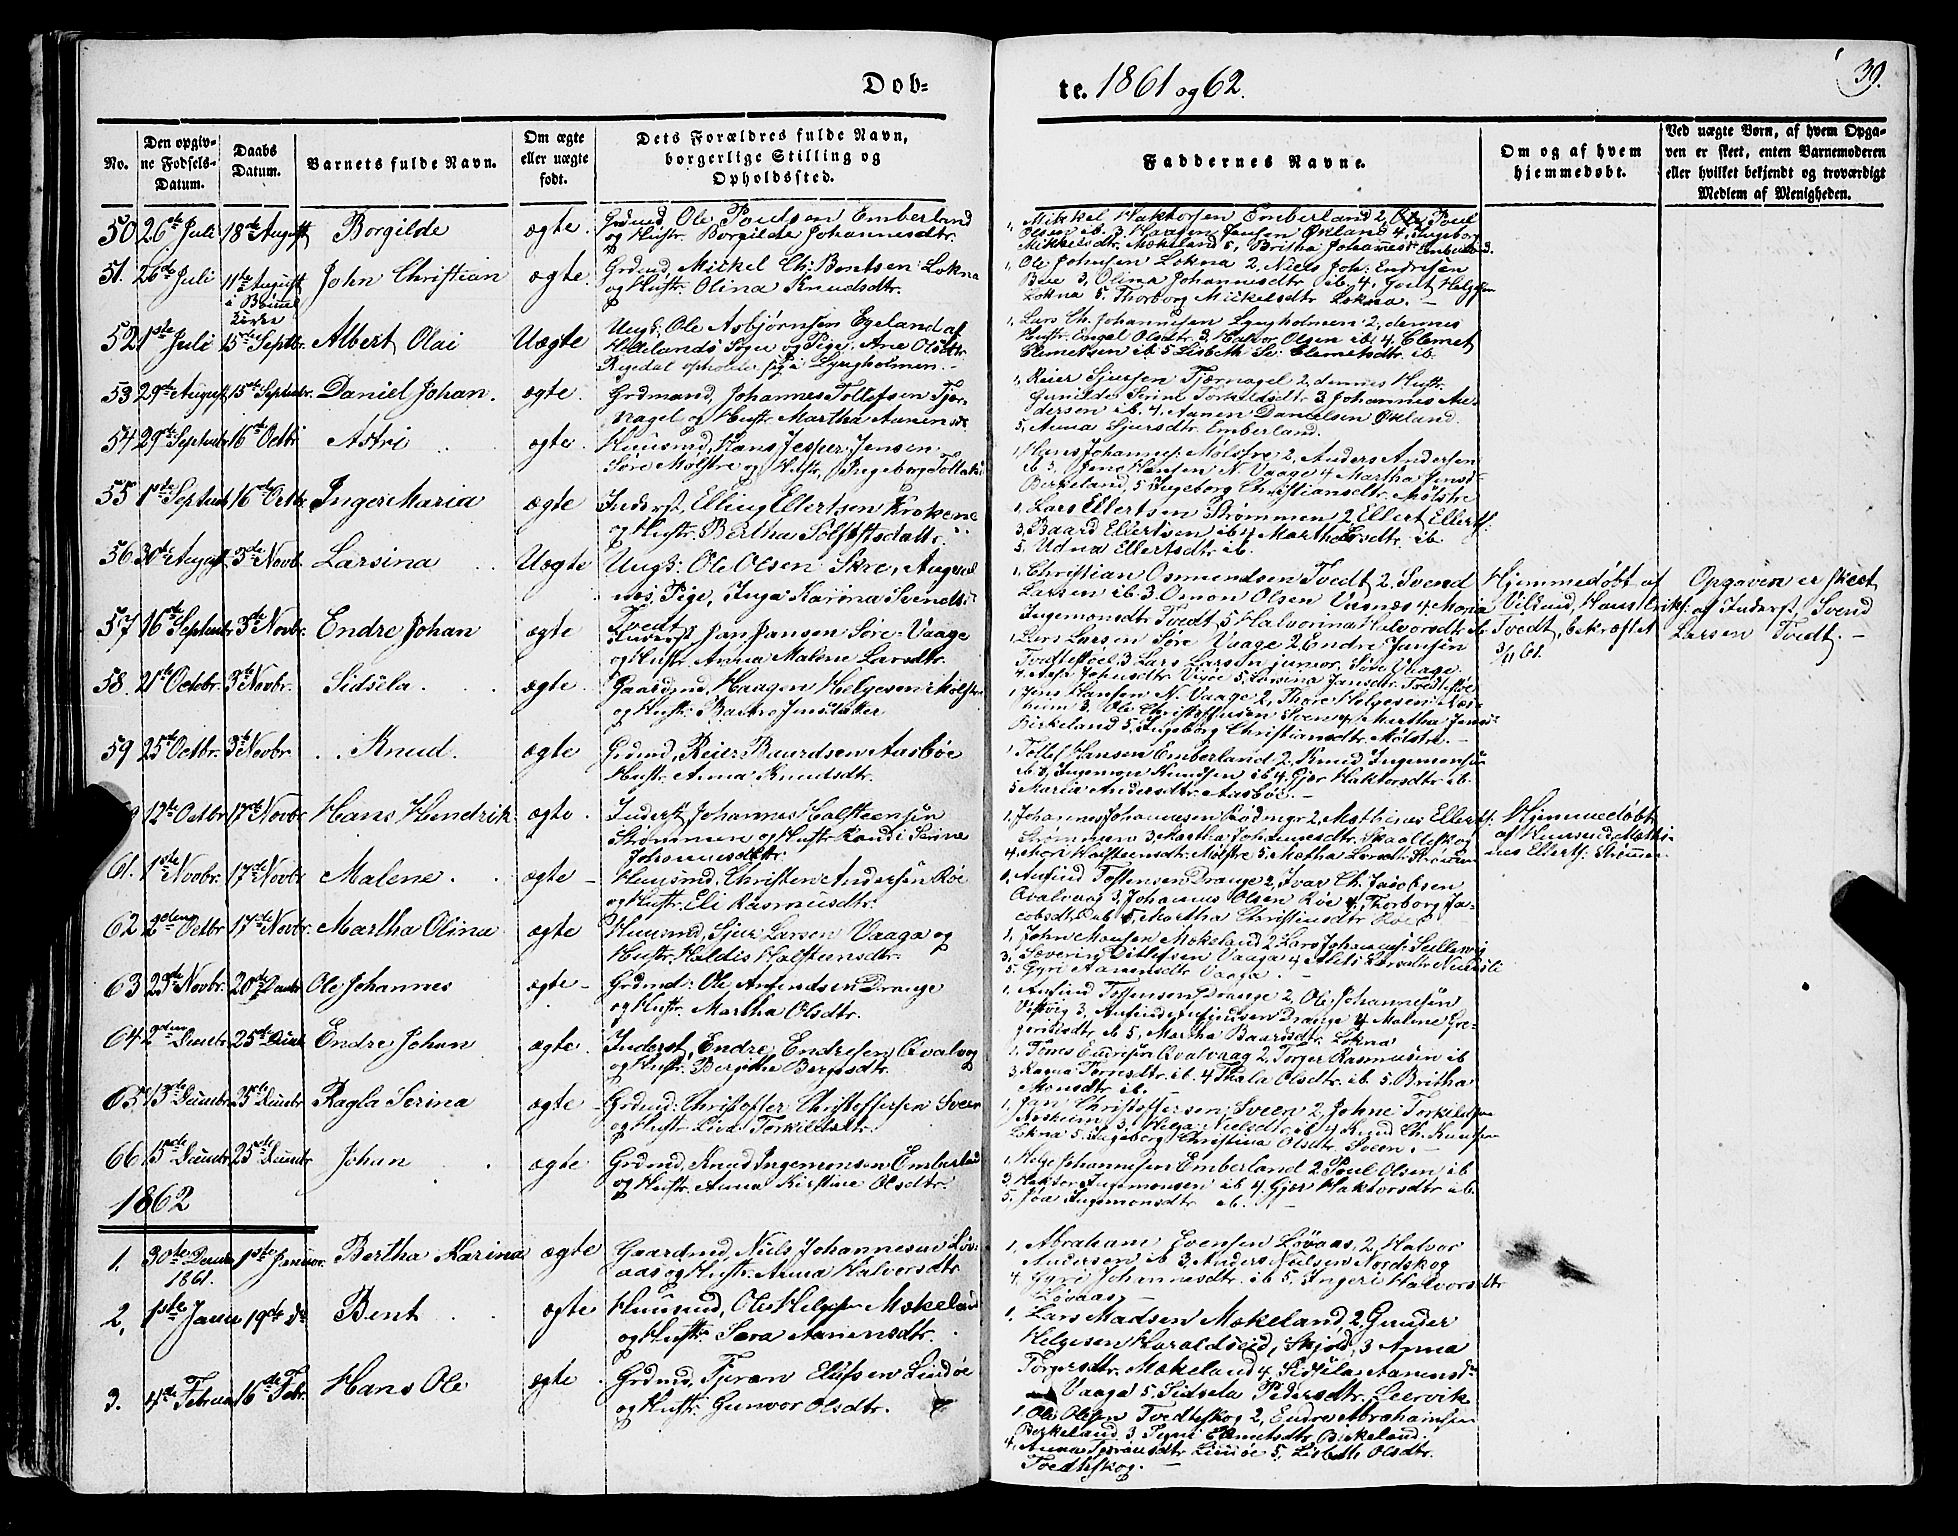 Døb-
te. 1861 og 62.
39.
No.
Den opgiv-
ne Fødsels-
Datum.
Daabs
Datum.
Barnets fulde Navn.
Om ægte
eller uægte
født.
Dets Forældres fulde Navn,
borgerlige Stilling og
Opholdssted.
Faddernes Navne.
Om og af hvem
hjemmedøbt.
Ved uægte Børn, af hvem Opga-
ven er skeet, enten Barnemoderen
eller hvilket bekjendt og troværdigt
Medlem af Menigheden.
50 26de Juli 18de August Borgilde ægte. Grdmd, Ole Poulsen Emberland
og Hustr. Borgilde Johannesdtr.
1, Mikkel Haktorsen Emberland 2, Ole Poul
Olsen ib. 3, Haagen Jensen Økland 4, Ingeborg
Mikkelsdtr. Mækeland 5, Britha Johannesdtr Emberland.
51. 26de Juli 11te August i Kirke John Christian ægte. Grdmd, Mickel Ch: Bentsen Lokna
og Hustr. Olina Knudsdtr.
1, Ole Johnsen Lokna 2, Niels Joh: Endresen
Boe 3, Olina Johannesdtr ib. 4, Helgesen
Lokna 5. Thorborg Mickelsdtr Lokna.
52. 1ste Juli 15de Septbr. Albert Olai Uægte Ungk: Ole Asbjørnsen Egeland af
Sogn og Pige, Ane Olsdtr.
opholder sig i Lyngholmen.
1, Lars Ch. Johannesen Lyngholmen 2, dennes
Hustr. Engel Olsdtr. 3, Halvor Olsen ib. 4, Clemet
Clemetsen ib 5 Lisbeth Se: Clemetsdtr. ib.
53 29de August 15de Septbr. Daniel Johan. ægte. Grdmand, Johannes Tollefsen Tjer-
nagel og Hustr. Martha Aamensdtr
1, Reier Sjursen Tjernagel 2, dennes Hustr.
Gunilde Serine Torkildsdtr 3, Johannes An-
dersen ib. 4, Aanen Danielsen Økland.
5, Anna Sjursdtr. Emberland.
54 29de Septbr 16de Octbr Astri ægte. Huusmd, Hans Jesper Jensen
Søre Mølstre og Hustr, Ingeborg
1, Hans Johannes: Mølstre 2, Anders Andersen
ib 3, Jens Hansen N. Vaage 4 Martha Jensd-
Berkeland, 5, Ingeborg Christiansdtr. Mølstre
55 1ste Septbr 16de Octbr Inger Maria ægte Inderst, Elling Ellertsen Krokene
og Hustr. Bertha
1, Lars Ellertsen Strømmen 2, Ellert Ellerts:
3, Baard Ellertsen ib. 4, Martha ib.
5, Udna Ellertsdtr ib.
56 30de August 3de Novb. Larsina Uægte Ungk: Ole Olsen Skre, Augvald
nes, Pige, Inga Karina Svends:
Tvedt.
1, Christian Osmundsen Tvedt 2. Svend
Larsen ib. 3. Omon Olsen Unsnæs 4. Maria
Ingemonsdtr Tvedt. 5. Halvorina Halvorsdtr ib
Hjemmedøbt af
Hans Erik
Tvedt, bekræftet
3/11 61.
Opgaven er skeet
af Inderst, Svend
Larsen Tvedt.
57 16de Septbr 3de Novbr. Endre Johan ægte Inderst Jan Jansen Søre-Vaage
og Hustr. Anna Malene Larsdtr.
1, Lars Larsen Søre Vaage 2, Endre Jansen
Tvedtestøel 3. Lars Larsen junior, Søre Vaage
4, Johnsdtr. Vigøe 5, Larsina Jansdtr. Tvedtestøl
58. 21de Octobr. 3de Novbr. Sidsela ægte. Gaardmd, Haagen Helgesen Mølstre
og Hustr.
1, Jens Hansen N. Vaage 2, Thore Helgesen Næs-
heim 3, Ole Christoffersen Sveen 4, Martha Jensd:
Birkeland 5, Ingeborg Christiansdtr. Mølstre.
59 25de Octbr. 3de Novbr. Knud. ægte Grdmd, Reier Baardsen Aasbøe
Hustr. Anna Knudsdtr.
1, Tollef Hansen Emberland 2, Knud Ingemonsen
ib. 3, Ingemon Knudsen ib 4, Gjør Haktorsdtr ib.
5, Maria Andersdtr. Aasbøe.
12te Octbr 17de Novbr Hans Hendrik ægte. Inderst, Johannes Halsteensen
Strømmen og Hustr Randi Serina
Johannesdtr.
1, Johannes Johannesen 2, Mathias Ellerts:
Strømmen 3, Martha Johannesdtr.
4, Halsteensdtr. Mølstre 5, Martha Strømm
Hjemmedøbt
af Huusmd, Mathi-
as Ellerts: Strømm.
61. 1ste Novbr. 17de Novbr Malene. ægte Huusmd, Christen Andersen Røe
og Hustr. Eli Rasmusdtr.
1, Amund Tostensen Drange 2, Ivar Ch. Jacobsen
Qvalvaag 3, Johannes Olsen Røe 4, Thorborg Ja-
cobsdtr. ib 5, Martha Christensdtr Røe
62 2den Octbr 17de Novbr. Martha Olina ægte Huusmd, Sjur Larsen Vaaga og
Hustr. Haldis Halsteensdtr.
1, John Monsen Mækeland 2 Lars Johannes:
3, Severin Ditlefsen Vaaga 4 Larsdtr.
5. Gyri Aanensdtr Vaaga.
63 23de Novbr. 20de Ole Johannes ægte Grdmd: Ole Amundsen Drange
og Hustr. Martha Olsdtr.
1, Amund Tostensen Drange 2, Ole Johannesen
3, Drange 4 Malene Gre-
gersdtr ib 5, Martha Baardsdtr Lokna
64 2den Decbr. 25de Decbr Endre Johan ægte. Inderst, Endre Endresen Qvalvog
og Hustr. Berthe
1, Qvalvaag 2, Torger Rasmusen ib
3 ib. 4 Thala Olsdtr. ib 5. Britha
Monsdtr ib.
65 13de Decbr. 25de Decbr Ragla Serina ægte Grdmd: Christoffer Christoffersen Sveen
og Hustr. Lisa Torkildsdtr
1, Jan Christoffersen Sveen 2, Johne Torkildsen
3, Helga Nielsdtr ib 4 Knud Ch. Knudsen
Lokna 5, Ingeborg Christina Olsdtr Sveen.
66 15de Decbr 25de Decbr Johan ægte Grdmd, Knud Ingemonsen Emberland
og Hustr. Anna Kirstine Olsdtr.
1, Helge Johannesen Emberland 2, Poul Olsen ib
3, Haktor Ingemonsen ib 4, Gjør Haktorsdtr ib.
5, Ingemonsdtr ib.
1862
1. 30te Decbr 1861. 1ste Januar. Bertha Karina ægte Gaardmd, Niels Johannesen Løv-
aas og Hustr. Anna Halvorsdtr.
1, Abraham Evensen Løvaas, 2, Halvor
Andersen ib 3, Anders Nielsen Nordskog
4, Gyri Johannesdtr. ib 5. Ingeri Halvorsdtr
Løvaas
2, 1ste Januar 19de do Bent ægte Huusmd, Ole Helgesen Mækeland
og Hustr. Sara Aanensdtr.
1. Lars Madsen Mækeland, 2, Gunder
Helgesen Haraldseid, Skjold, 3 Anna
Torgersdtr. Mækeland 4, Sidsela Aanensd-
Vaaga 5, Sidsela Pedersdtr. Leervik
3. 4de Februar 16de Febr. Hans Ole ægte Grdmd, Tjeran Elefsen Lindøe
og Hustr. Gunvor Olsdtr.
1. Ole Olesen Tvedteskog 2, Endre Abrahamsen
Berkeland 3. Clemetsdtr Birkeland
4, Anna Tjeransdtr Lindøe 5, Lisbeth Olsdtr.
Tvedteskog.